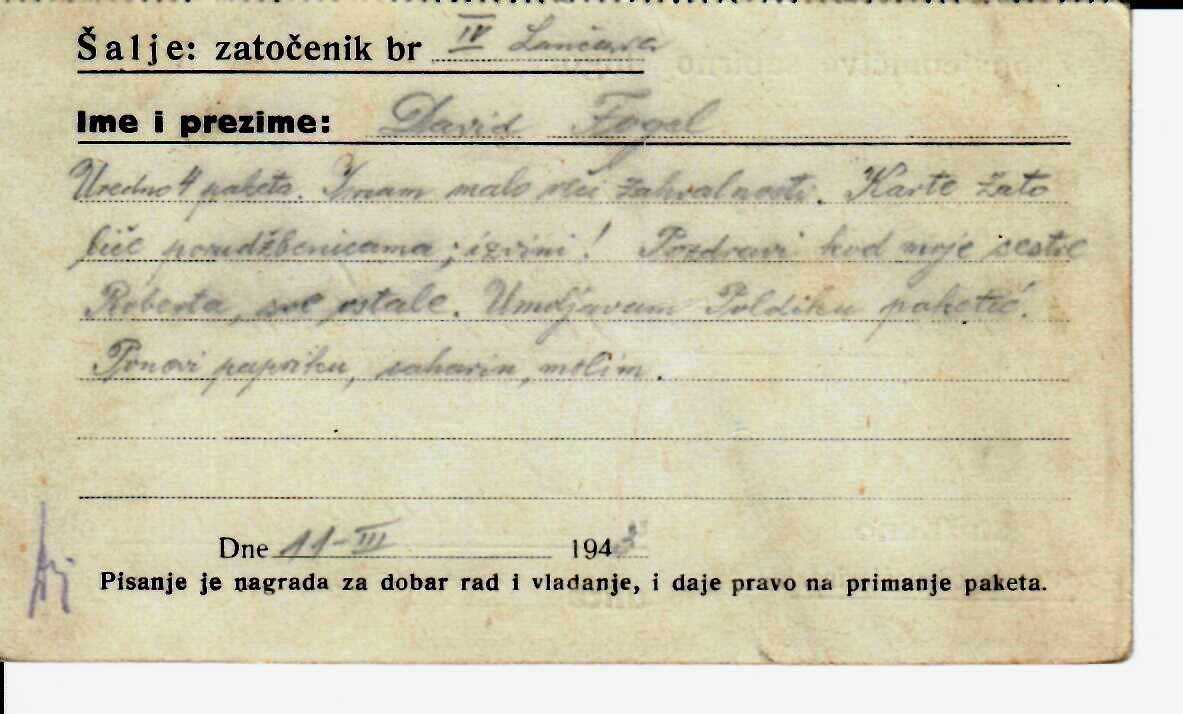 Šalje: zatočenik br IV Lančara
Ime i prezime: David Fogel
Uredno 4 paketa. Imam malo reči zahvalnosti. Karte zato
biće porudžbenicama; izvini! Pozdravi kod moje sestre
Roberta, sve ostale. Umoljavam Poldiku paketić.
Ponovi papriku, saharin, molim.
Dne 11-III 1943
Pisanje je nagrada za dobar rad i vladanje, i daje pravo na primanje paketa.